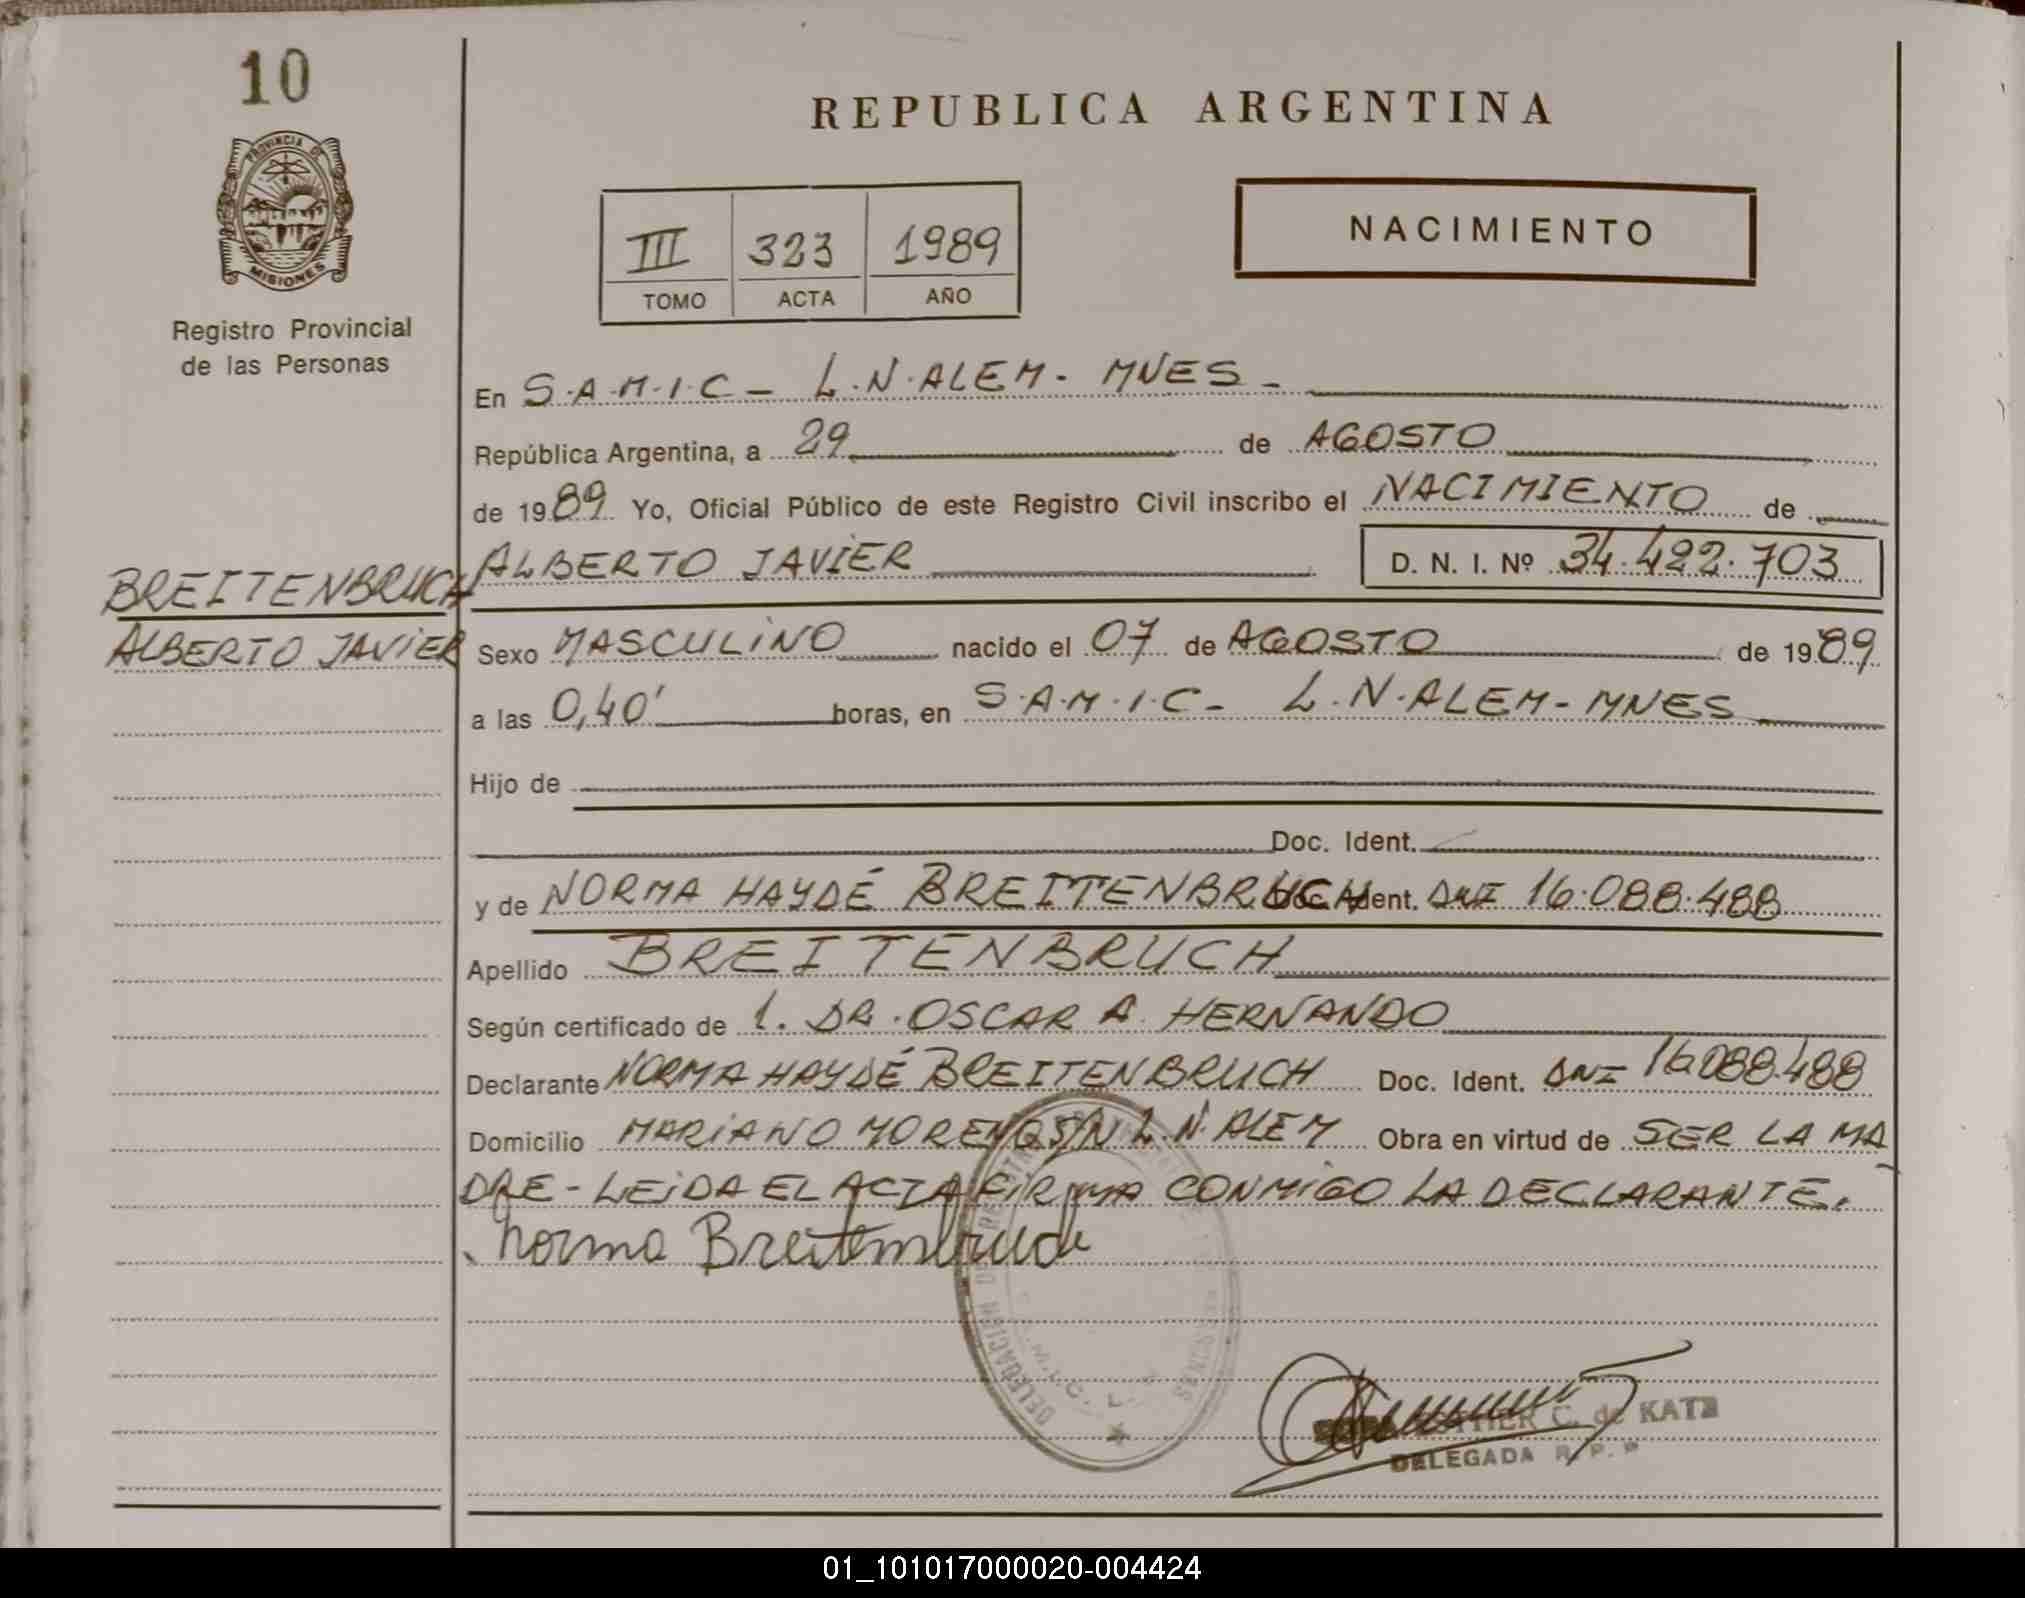 10
REPUBLICA ARGENTINA
PROVINCIA DE
MISIONES
NACIMIENTO
III 323 1989
TOMO ACTA AÑO
Registro Provincial
de las Personas
En S.A.M.I.C - L.N.ALEM - MNES -
República Argentina, a 29 de AGOSTO
de 1989 Yo, Oficial Público de este Registro Civil inscribo el NACIMIENTO de
ALBERTO JAVIER D. N. I. Nº 34.422.703
BREITENBRUCH
ALBERTO JAVIER
Sexo MASCULINO nacido el 07 de AGOSTO de 1989
a las 0,40' horas, en S.A.M.I.C - L.N.ALEM - MNES
Hijo de
Doc. Ident.
y de NORMA HAYDÉ BREITENBRUCH Doc. Ident. DNI 16.088.488
Apellido BREITENBRUCH
Según certificado de 1. DR. OSCAR A. HERNANDO
Declarante NORMA HAYDÉ BREITENBRUCH Doc. Ident. DNI 16.088.488
Domicilio MARIANO MORENO S/N L.N.ALEM Obra en virtud de SER LA MA
DRE - LEIDA EL ACTA FIRMA CONMIGO LA DECLARANTE.
Norma Breitembruch
DELEGACION DE REGISTRO
PERSONAS
S.A.M.I.C. L.
ESTHER C. de KATZ
DELEGADA R. P.
01_101017000020-004424